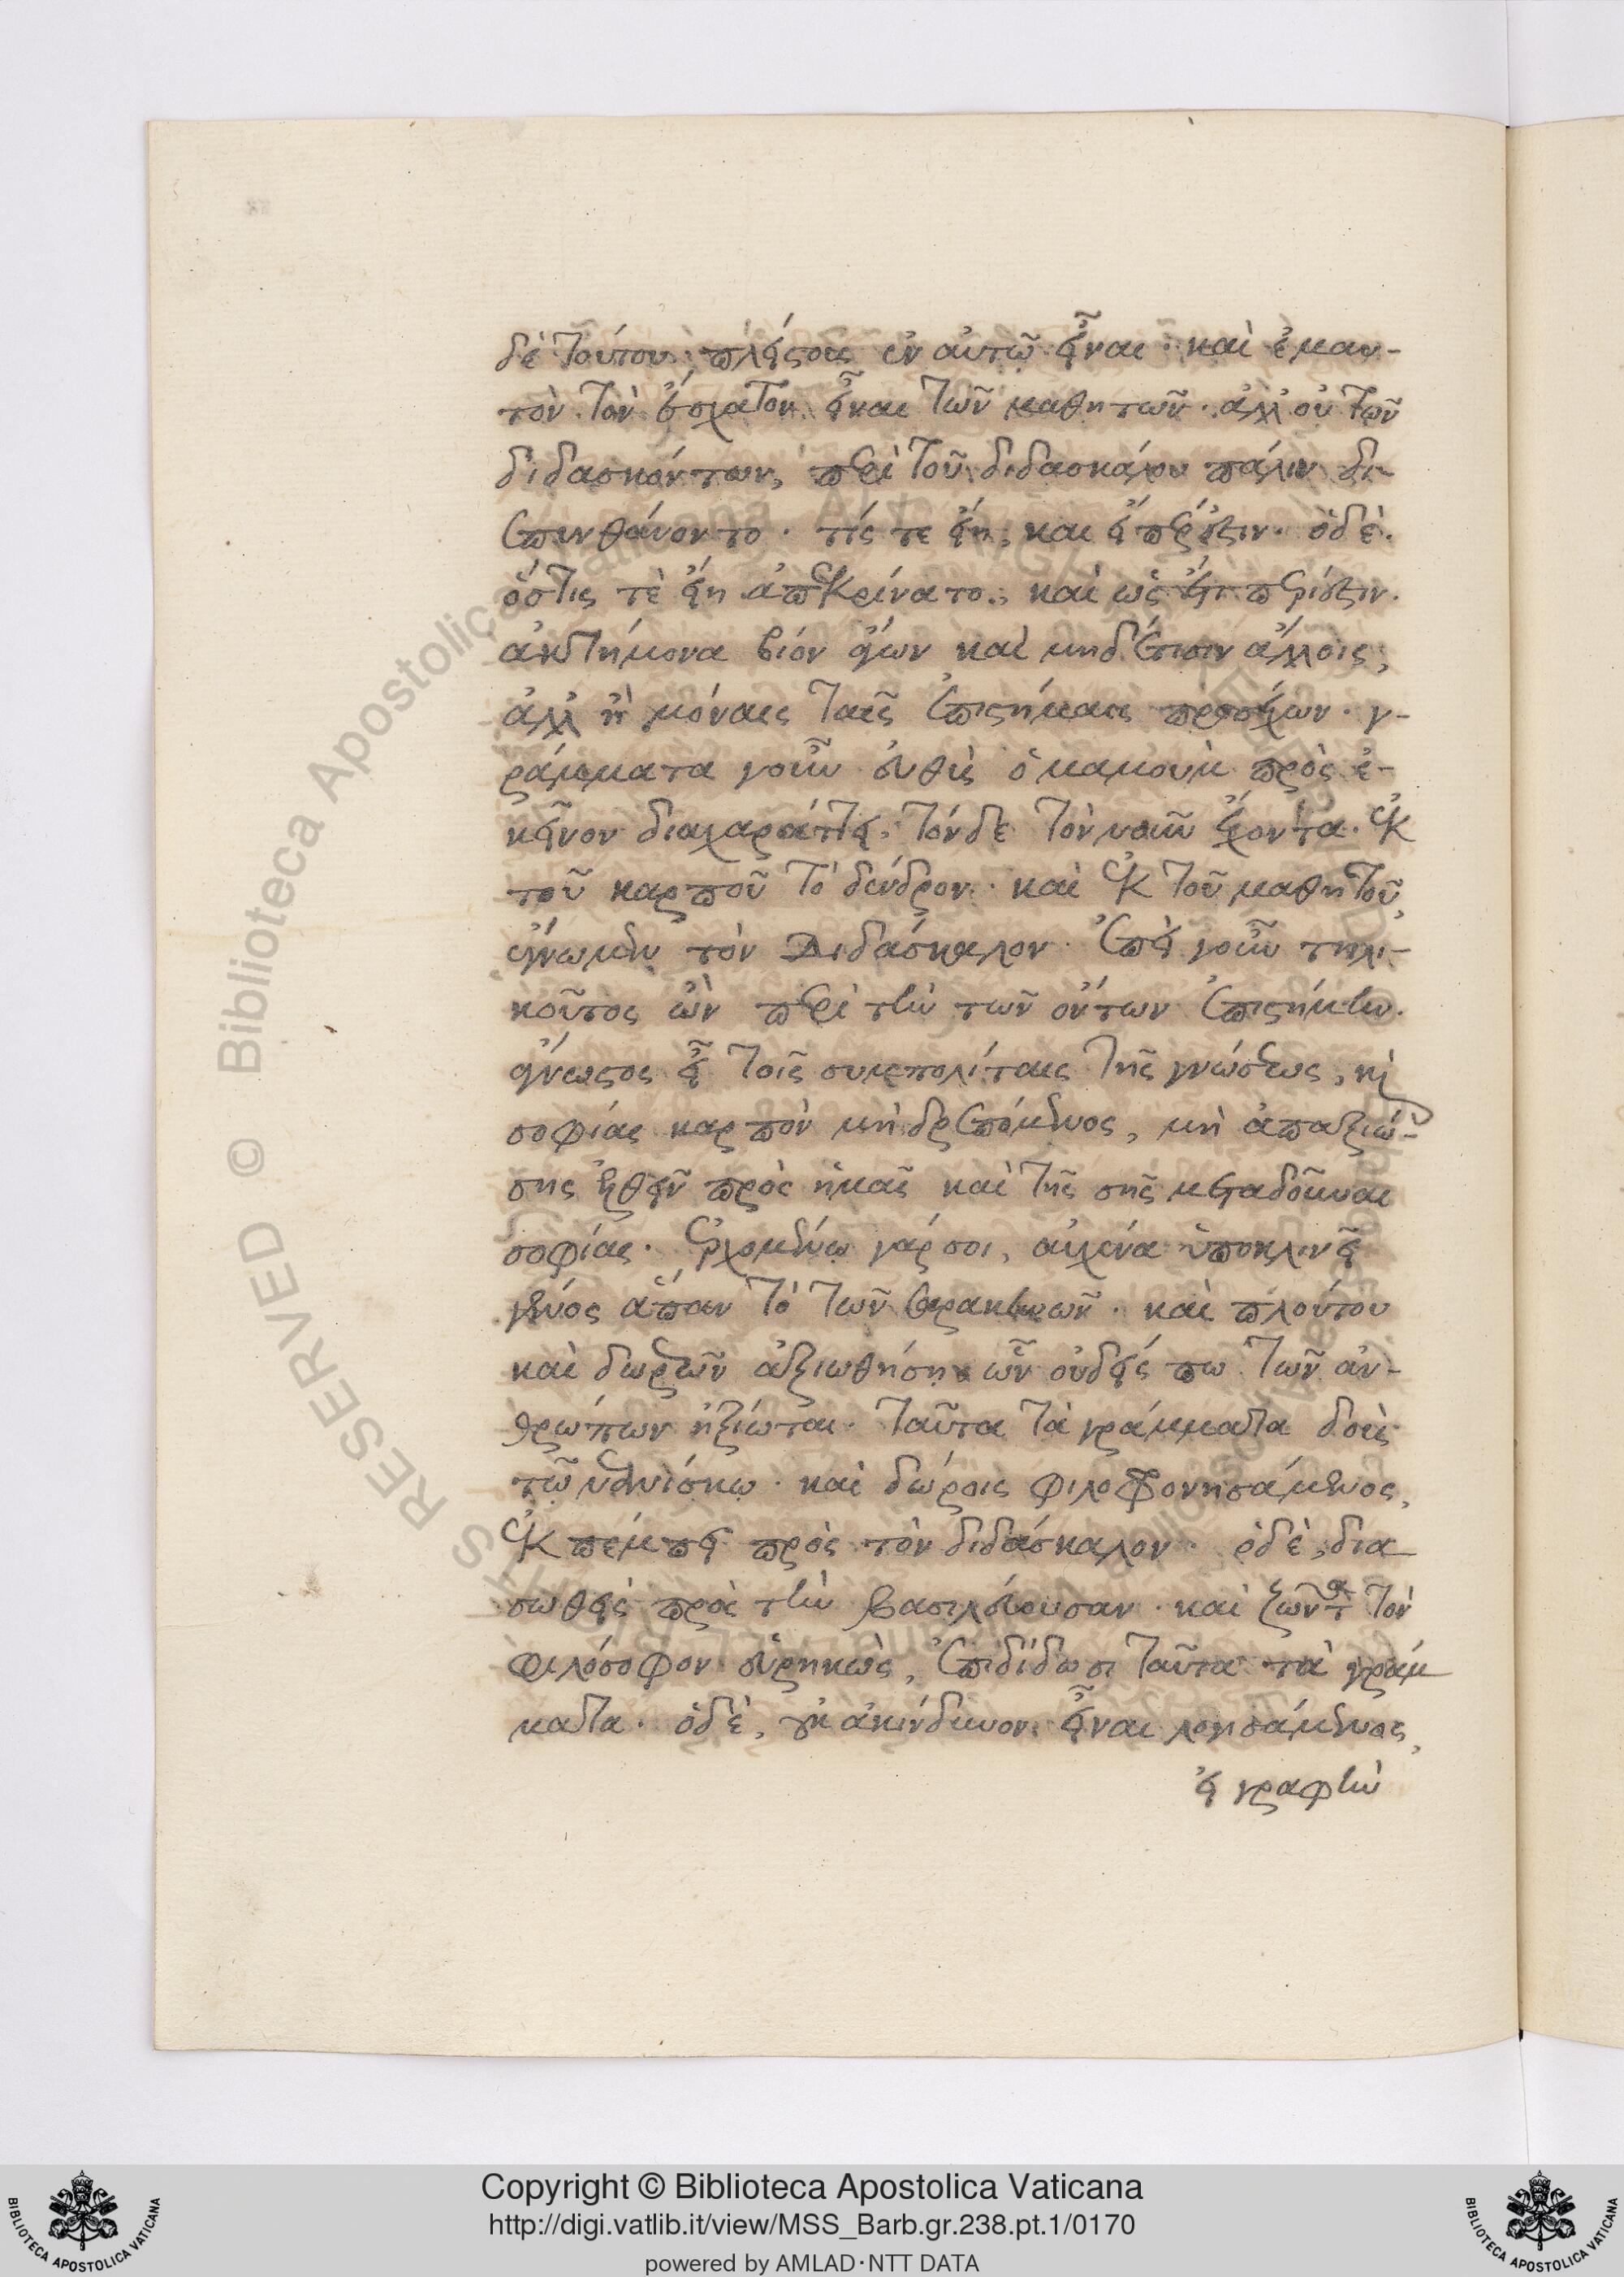 δὲ τούτου πλείστους ἐν αὐτῷ εἶναι· καὶ ἐμαυ-
τὸν τὸν ἔσχατον εἶναι τῶν μαθητῶν· ἀλλ' οὐ τῶν
διδασκόντων, περὶ τοῦ διδασκάλου πάλιν δι-
επυνθάνοντο· τίς τε εἴη, καὶ εἰ περίεστιν· ὁ δὲ
ὅστις τὲ εἴη ἀπεκρίνατο, καὶ ὡς ἔτι περίεστιν.
ἀκτήμονα βίον ἄγων καὶ μηδ' ἔπεσιν ἄλλοις,
ἀλλ' ἢ μόναις ταῖς ἐπιστήμαις προσέχων· γ-
ράμματα γοῦν εὐθὺς ὁ μαμοὺν πρὸς ἐ-
κεῖνον διαχαράττει, τόνδε τὸν νοῦν ἔχοντα. ἐκ
τοῦ καρποῦ τὸ δένδρον· καὶ ἐκ τοῦ μαθητοῦ
ἔγνωμεν τὸν Διδάσκαλον. ἐπεὶ γοῦν τηλι-
κοῦτος ὢν περὶ τὴν τῶν ὄντων ἐπιστήμην.
ἄγνωστος εἶ τοῖς συμπολίταις τῆς γνώσεως, κὶ
σοφίας καρπὸν μὴ δρεπόμενος, μὴ ἀπαξιώ-
σῃς ἐλθεῖν πρὸς ἡμᾶς καὶ τῆς σῆς μεταδοῦναι
σοφίας. ἐρχομένῳ γάρ σοι, αὐχένα ὑποκλινεῖ
γένος ἅπαν τὸ τῶν σαρακηνῶν· καὶ πλούτου
καὶ δωρεῶν ἀξιωθήσῃ ὧν οὐδείς πω τῶν ἀν-
θρώπων ἠξίωται. ταῦτα τὰ γράμματα δοὺς
τῷ νεανίσκῳ· καὶ δώροις φιλοφρονησάμενος,
ἐκπέμπει πρὸς τὸν διδάσκαλον. ὁ δὲ, δια
σωθεὶς πρὸς τὴν βασιλεύουσαν· καὶ ζῶντα τὸν
φιλόσοφον εὑρηκὼς, ἐπιδίδωσι ταῦτα τὰ γράμ
ματα. ὁ δὲ, οὐκ ἀκίνδυνον εἶναι λογισάμενος,
εἰ γραφὴν
Copyright © Biblioteca Apostolica Vaticana
http://digi.vatlib.it/view/MSS_Barb.gr.238.pt.1/0170
powered by AMLAD·NTT DATA